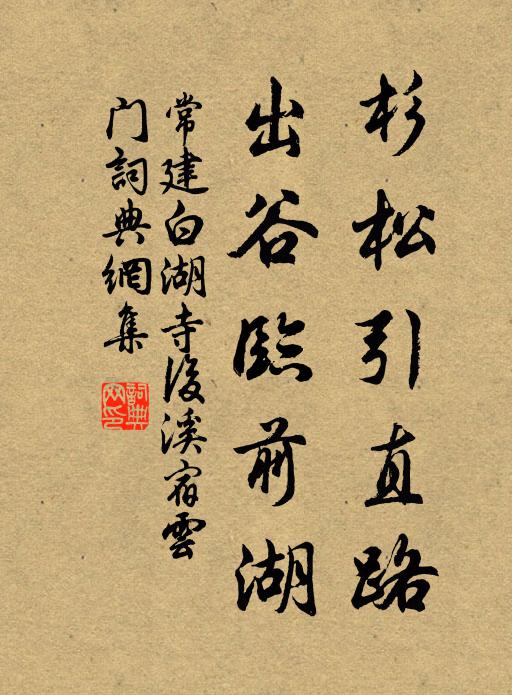 杉松引直路
出谷臨前湖
常建白湖寺後溪宿雲
門詞典網集
詞典網印